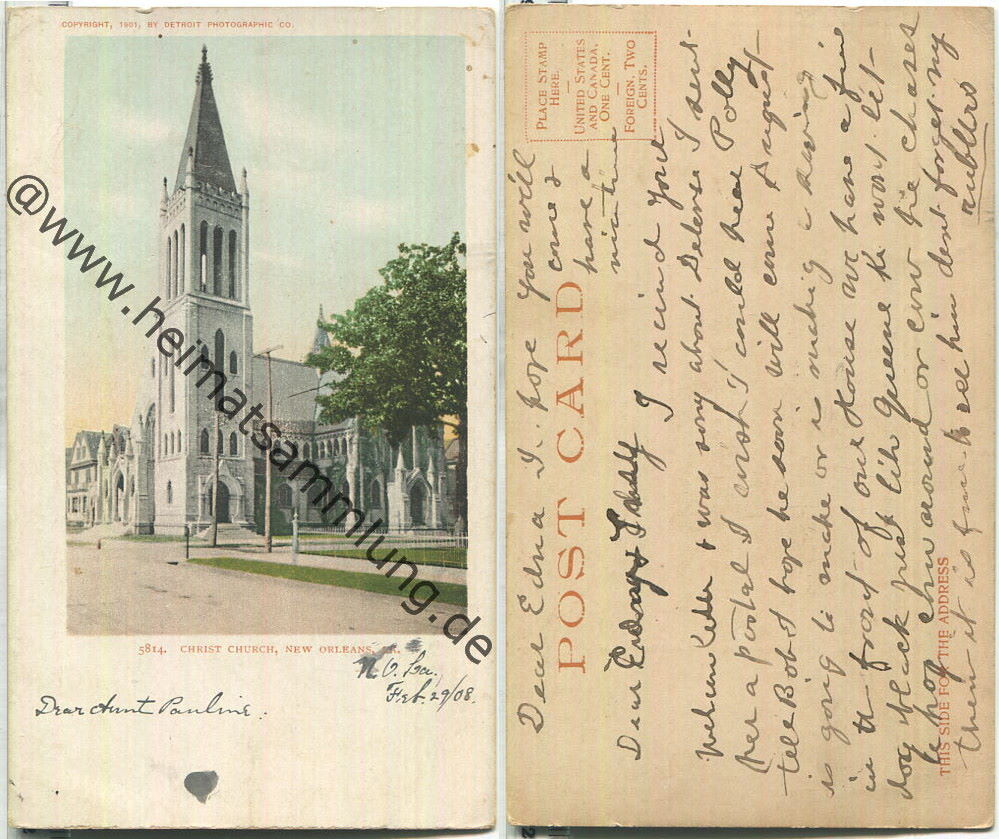 COPYRIGHT, 1901, BY DETROIT PHOTOGRAPHIC CO.
@www.heimatsammlung.de
5814. CHRIST CHURCH, NEW ORLEANS, LA.
N. O. La.
Feb. 29/08.
Dear Aunt Pauline.
PLACE STAMP
HERE.
—
UNITED STATES
AND CANADA,
ONE CENT.
—
FOREIGN, TWO
CENTS.
POST CARD
THIS SIDE FOR THE ADDRESS
Dear Edna I hope you will
come &
have a
nice time
Dear I recived your
letter & was sorry about Delores I sent
her a postal I wish I could hear Polly
tell Bob I hope he soon will come August
is going to make or is making a drawing
in the front of our House we have a fine
dog black just like Queene he wont let
the hog chu around or cow he chases
them it is fine to see him dont forget my
rubbers